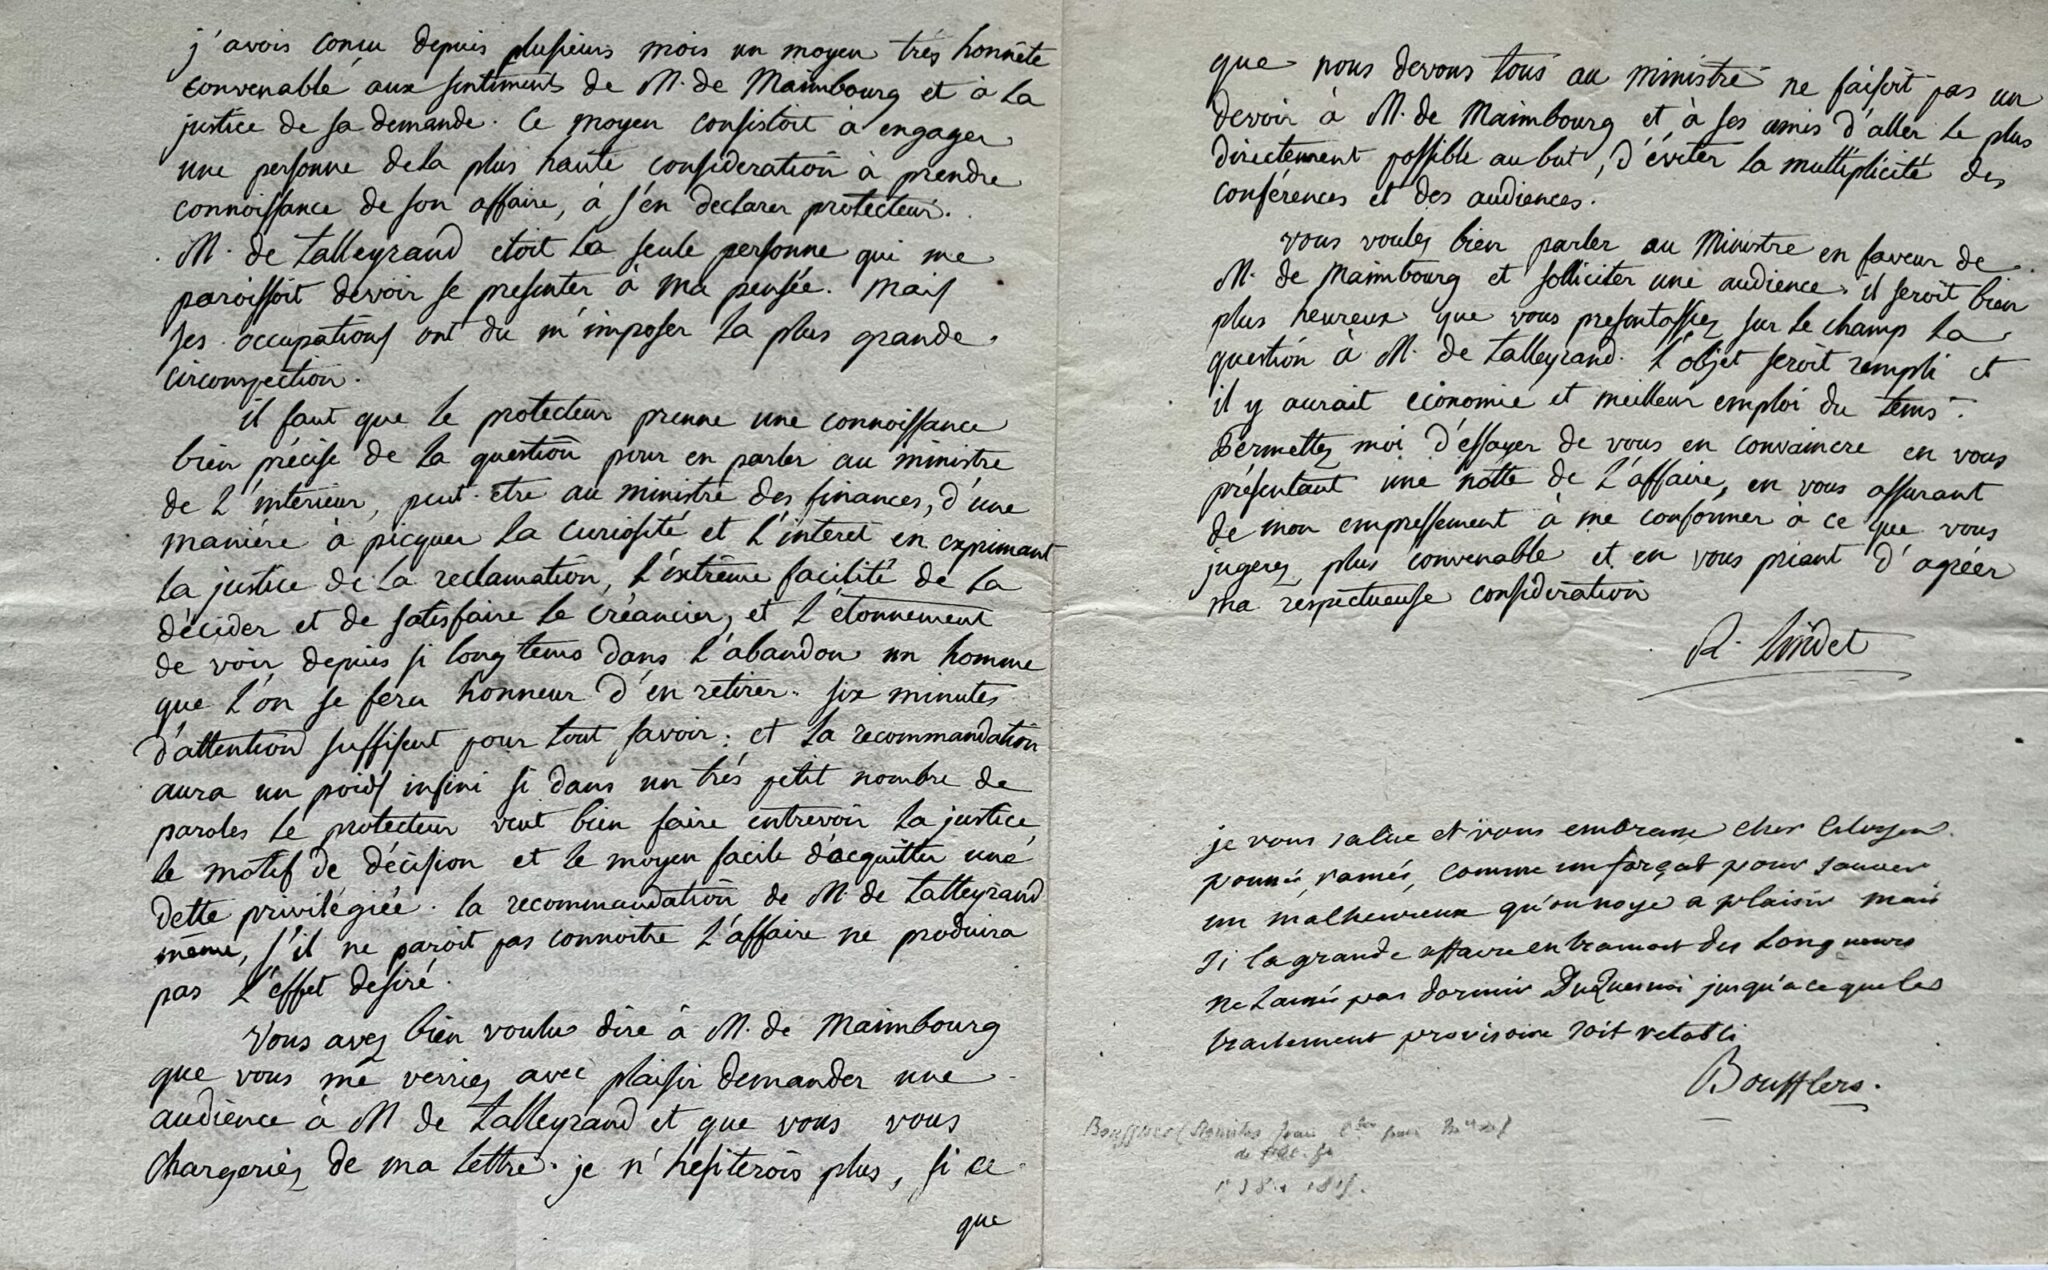 j'avois concu depuis plusieurs mois un moyen trés honnête
convenable aux sentiments de M. de Maimbourg et à la
justice de sa demande. Ce moyen consistoit à engager
une personne dela plus haute consideration à prendre
connoissance de son affaire, à s'en declarer protecteur.
M. de talleyrand etoit la seule personne qui me
paroissoit devoir se presenter à ma pensée. Mais
ses occupations ont du m'imposer la plus grande
circonspection.
il faut que le protecteur prenne une connoissance
bien précise de la question pour en parler au ministre
de l'interieur, peut-etre au ministre des finances, d'une
maniére à picquer la curiosité et l'interet en exprimant
la justice de la reclamation, l'extrême facilité de la
décider et de satisfaire le créancier, et l'étonnement
de voir depuis si long tems dans l'abandon un homme
que l'on se fera honneur d'en retirer. six minutes
d'attention suffisent pour tout savoir: et la recommandation
aura un poids infini si dans un trés petit nombre de
paroles le protecteur veut bien faire entrevoir la justice,
le motif de décision et le moyen facile d'acquitter une
dette privilégiée. la recommandation de M. de talleyrand
même, s'il ne paroit pas connoitre l'affaire ne produira
pas l'effet desiré.
Vous avez bien voulu dire à M. de Maimbourg
que vous me verriez avec plaisir demander une
audience à M de talleyrand et que vous vous
chargeriez de ma lettre. je n'hesiterois plus, si ce
que
que nous devons tous au ministre ne faisoit pas un
devoir à M. de Maimbourg et à ses amis d'aller le plus
directement possible au but, d'éviter la multiplicité des
conférences et des audiences.
vous voulez bien parler au Ministre en faveur de
M. de Maimbourg et solliciter une audience. il seroit bien
plus heureux que vous presentassiez sur le champ la
question à M. de talleyrand. l'objet seroit rempli et
il y aurait économie et meilleur emploi du tems.
Permettez moi d'essayer de vous en convaincre en vous
présentant une notte de l'affaire, en vous assurant
de mon empressement à me conformer à ce que vous
jugerez plus convenable et en vous priant d'agréer
ma respectueuse consideration
R. Lindet
je vous salue et vous embrasse cher Citoyen.
ramés, comme un forçat pour sauver
un malheureux qu'on noye a plaisir mais
si la grande affaire entrainoit des longueurs
ne laissés pas dormir DuQuesnoi jusqu'a ce que les
traitement provisoire soit retabli
Boufflers.
Boufflers
1738 1815.